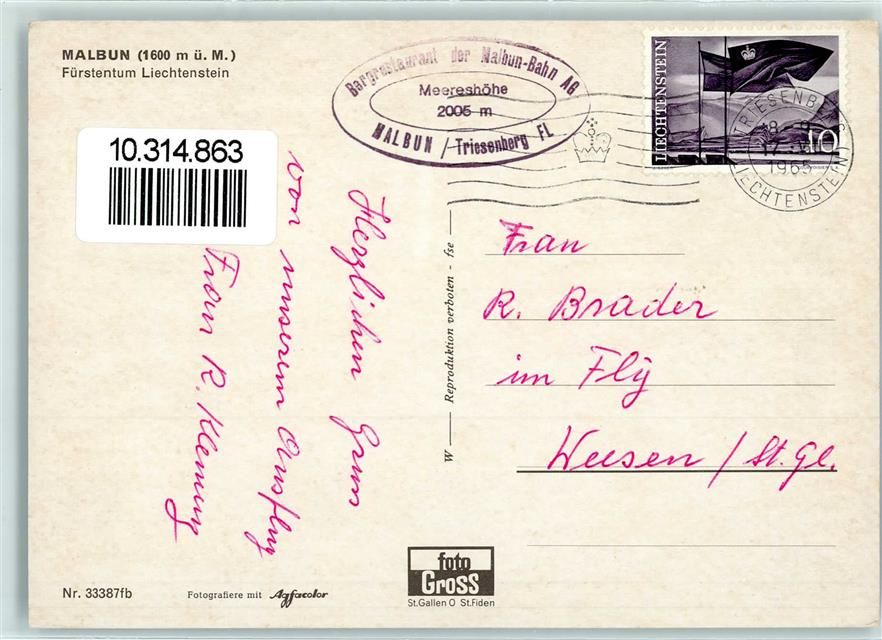 MALBUN (1600 m ü. M.)
Fürstentum Liechtenstein
10.314.863
Bergrestaurant der Malbun-Bahn AG
Meereshöhe
2005 m
MALBUN / Triesenberg FL
LIECHTENSTEIN
10
TRIESENBERG
17
1965
LIECHTENSTEIN
Herzlichen Gruss
von unserem Ausflug
Frau R.
W — Reproduktion verboten - fse —
Frau
R. Brader
im Fly
Weesen / St. Gl.
Nr. 33387fb
Fotografiere mit Agfacolor
foto
Gross
St.Gallen O St.Fiden